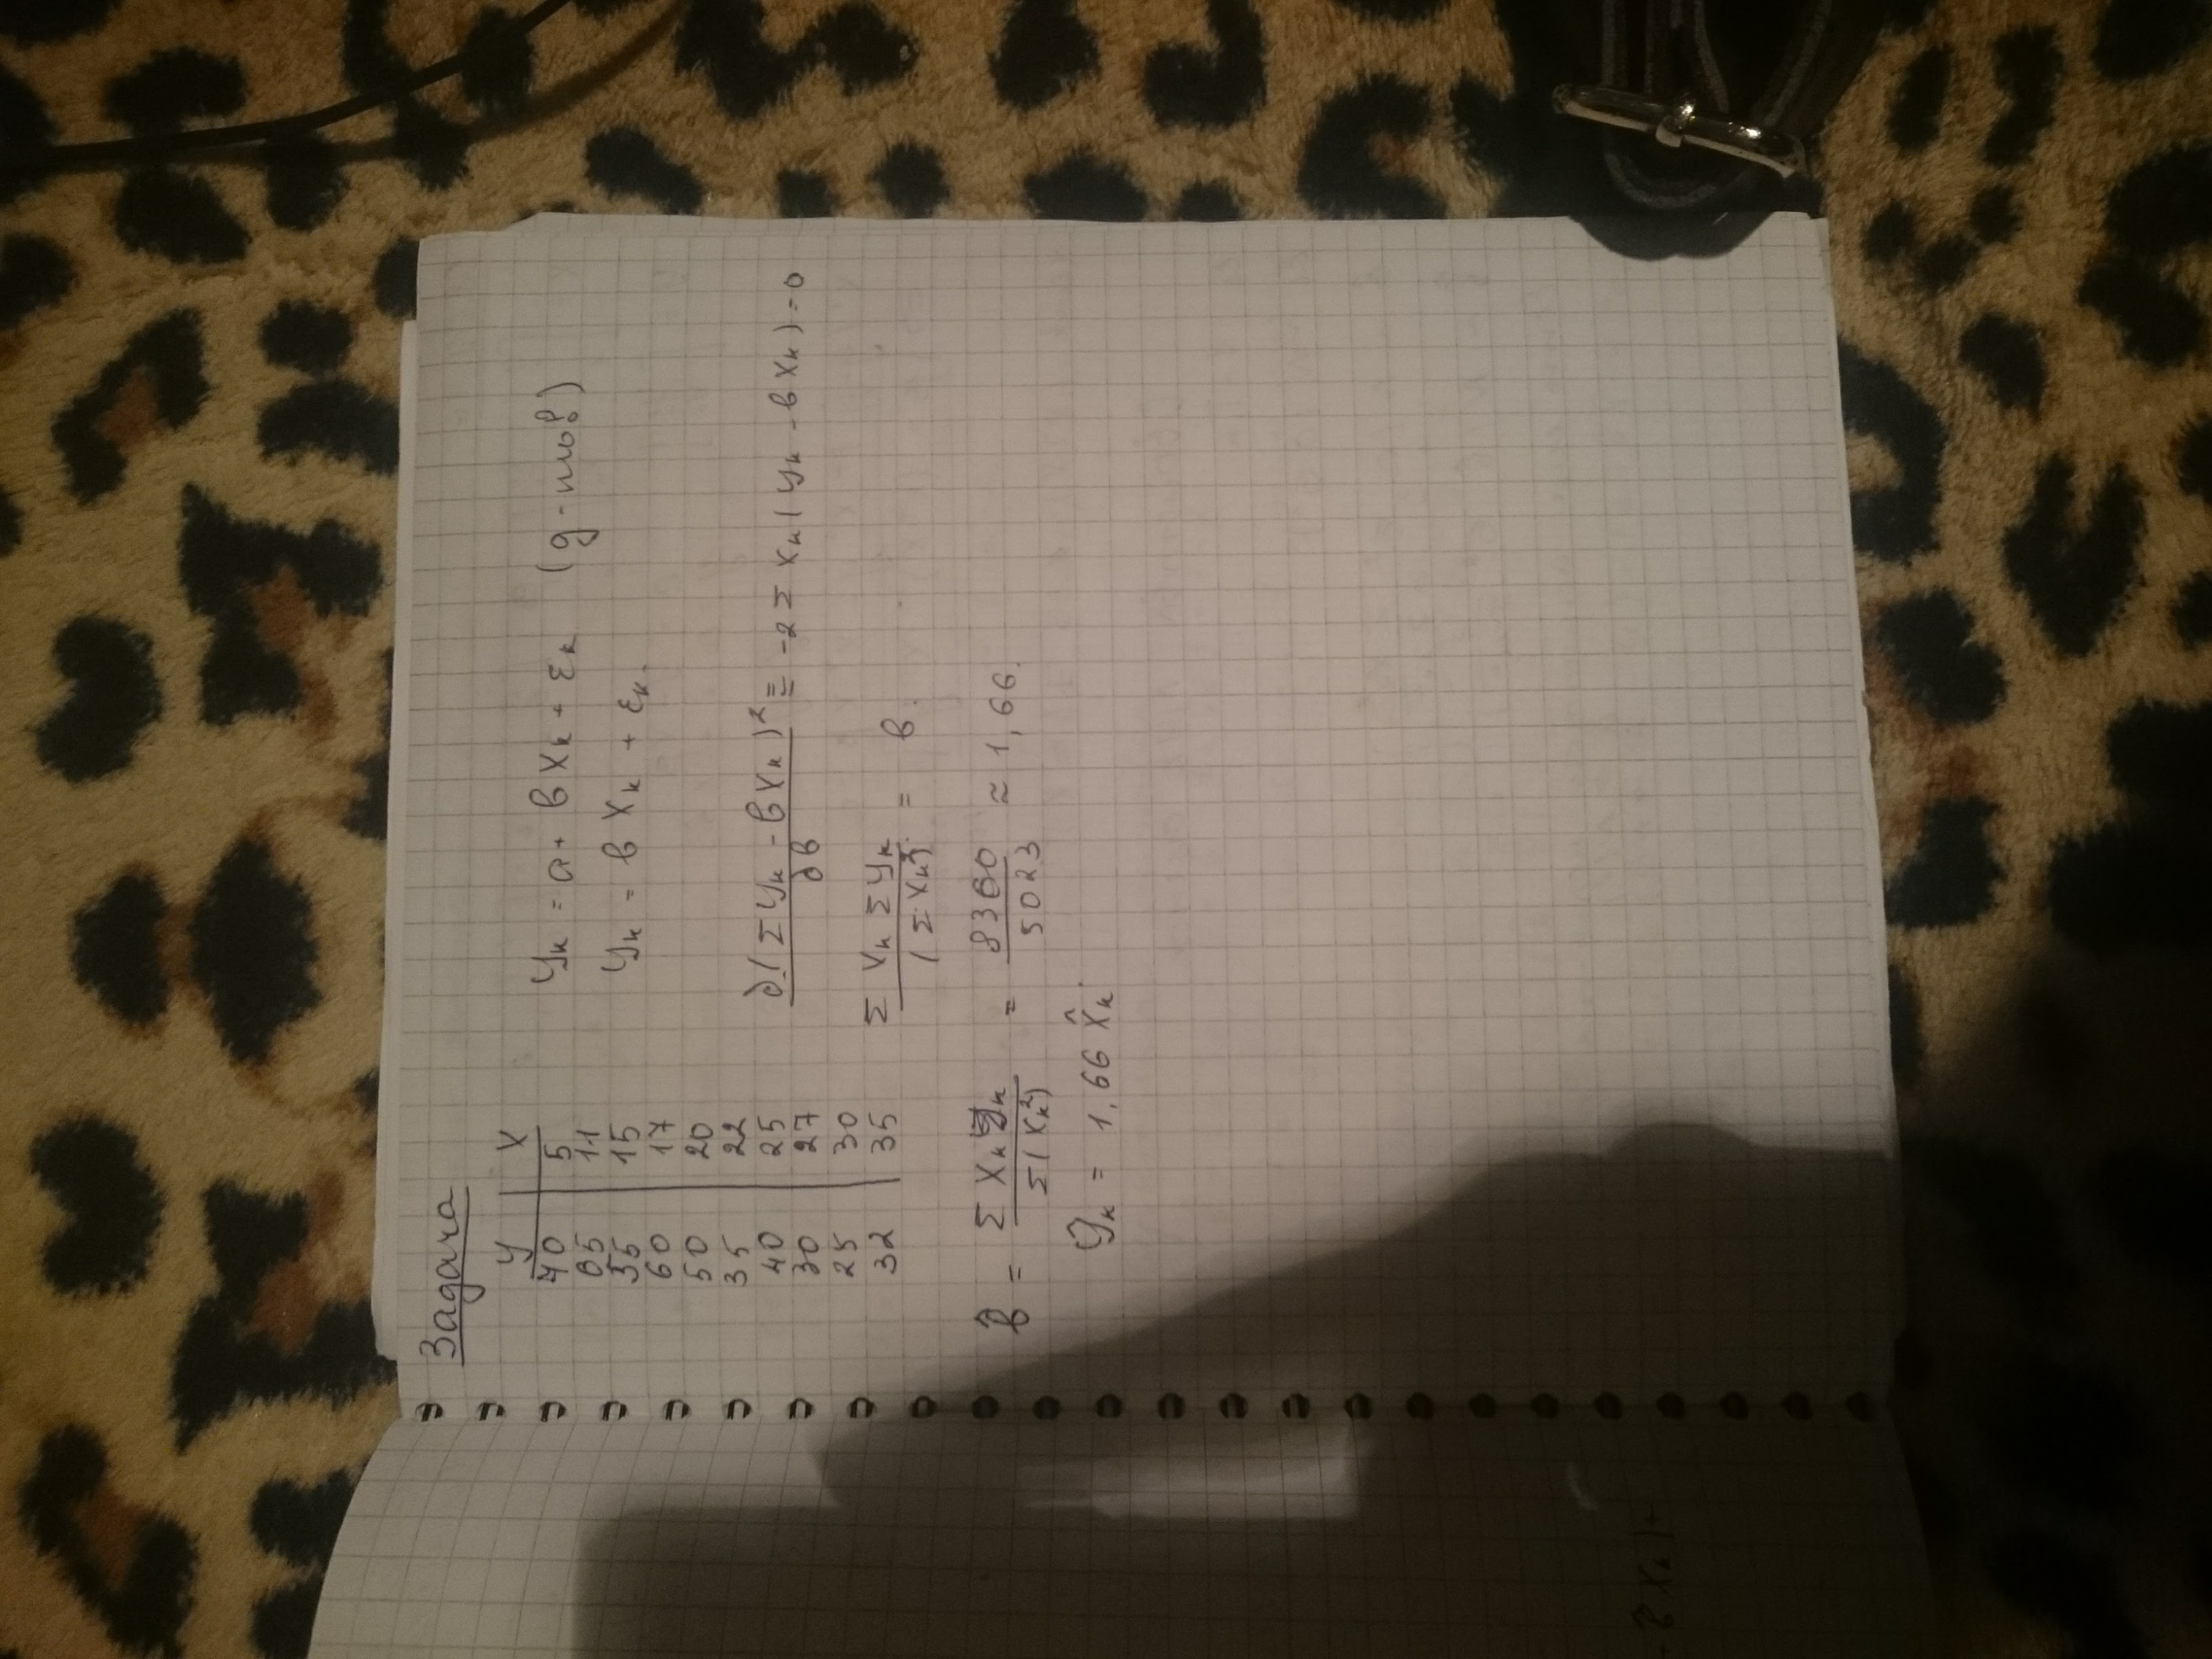 Задача
y x
40 5
65 11
55 15
60 17
50 20
35 22
40 25
30 27
25 30
32 35
yₖ = a + вxₖ + εₖ (g-ть?)
yₖ = вxₖ + εₖ.
∂(Σyₖ - вxₖ)² / ∂в = -2Σxₖ(yₖ - вxₖ) = 0
Σxₖ Σyₖ / (Σxₖ²) = в.
в̂ = Σxₖyₖ / Σ(xₖ²) = 8360 / 5023 ≈ 1,66.
ŷₖ = 1,66 x̂ₖ.
- в̂xₖ)+